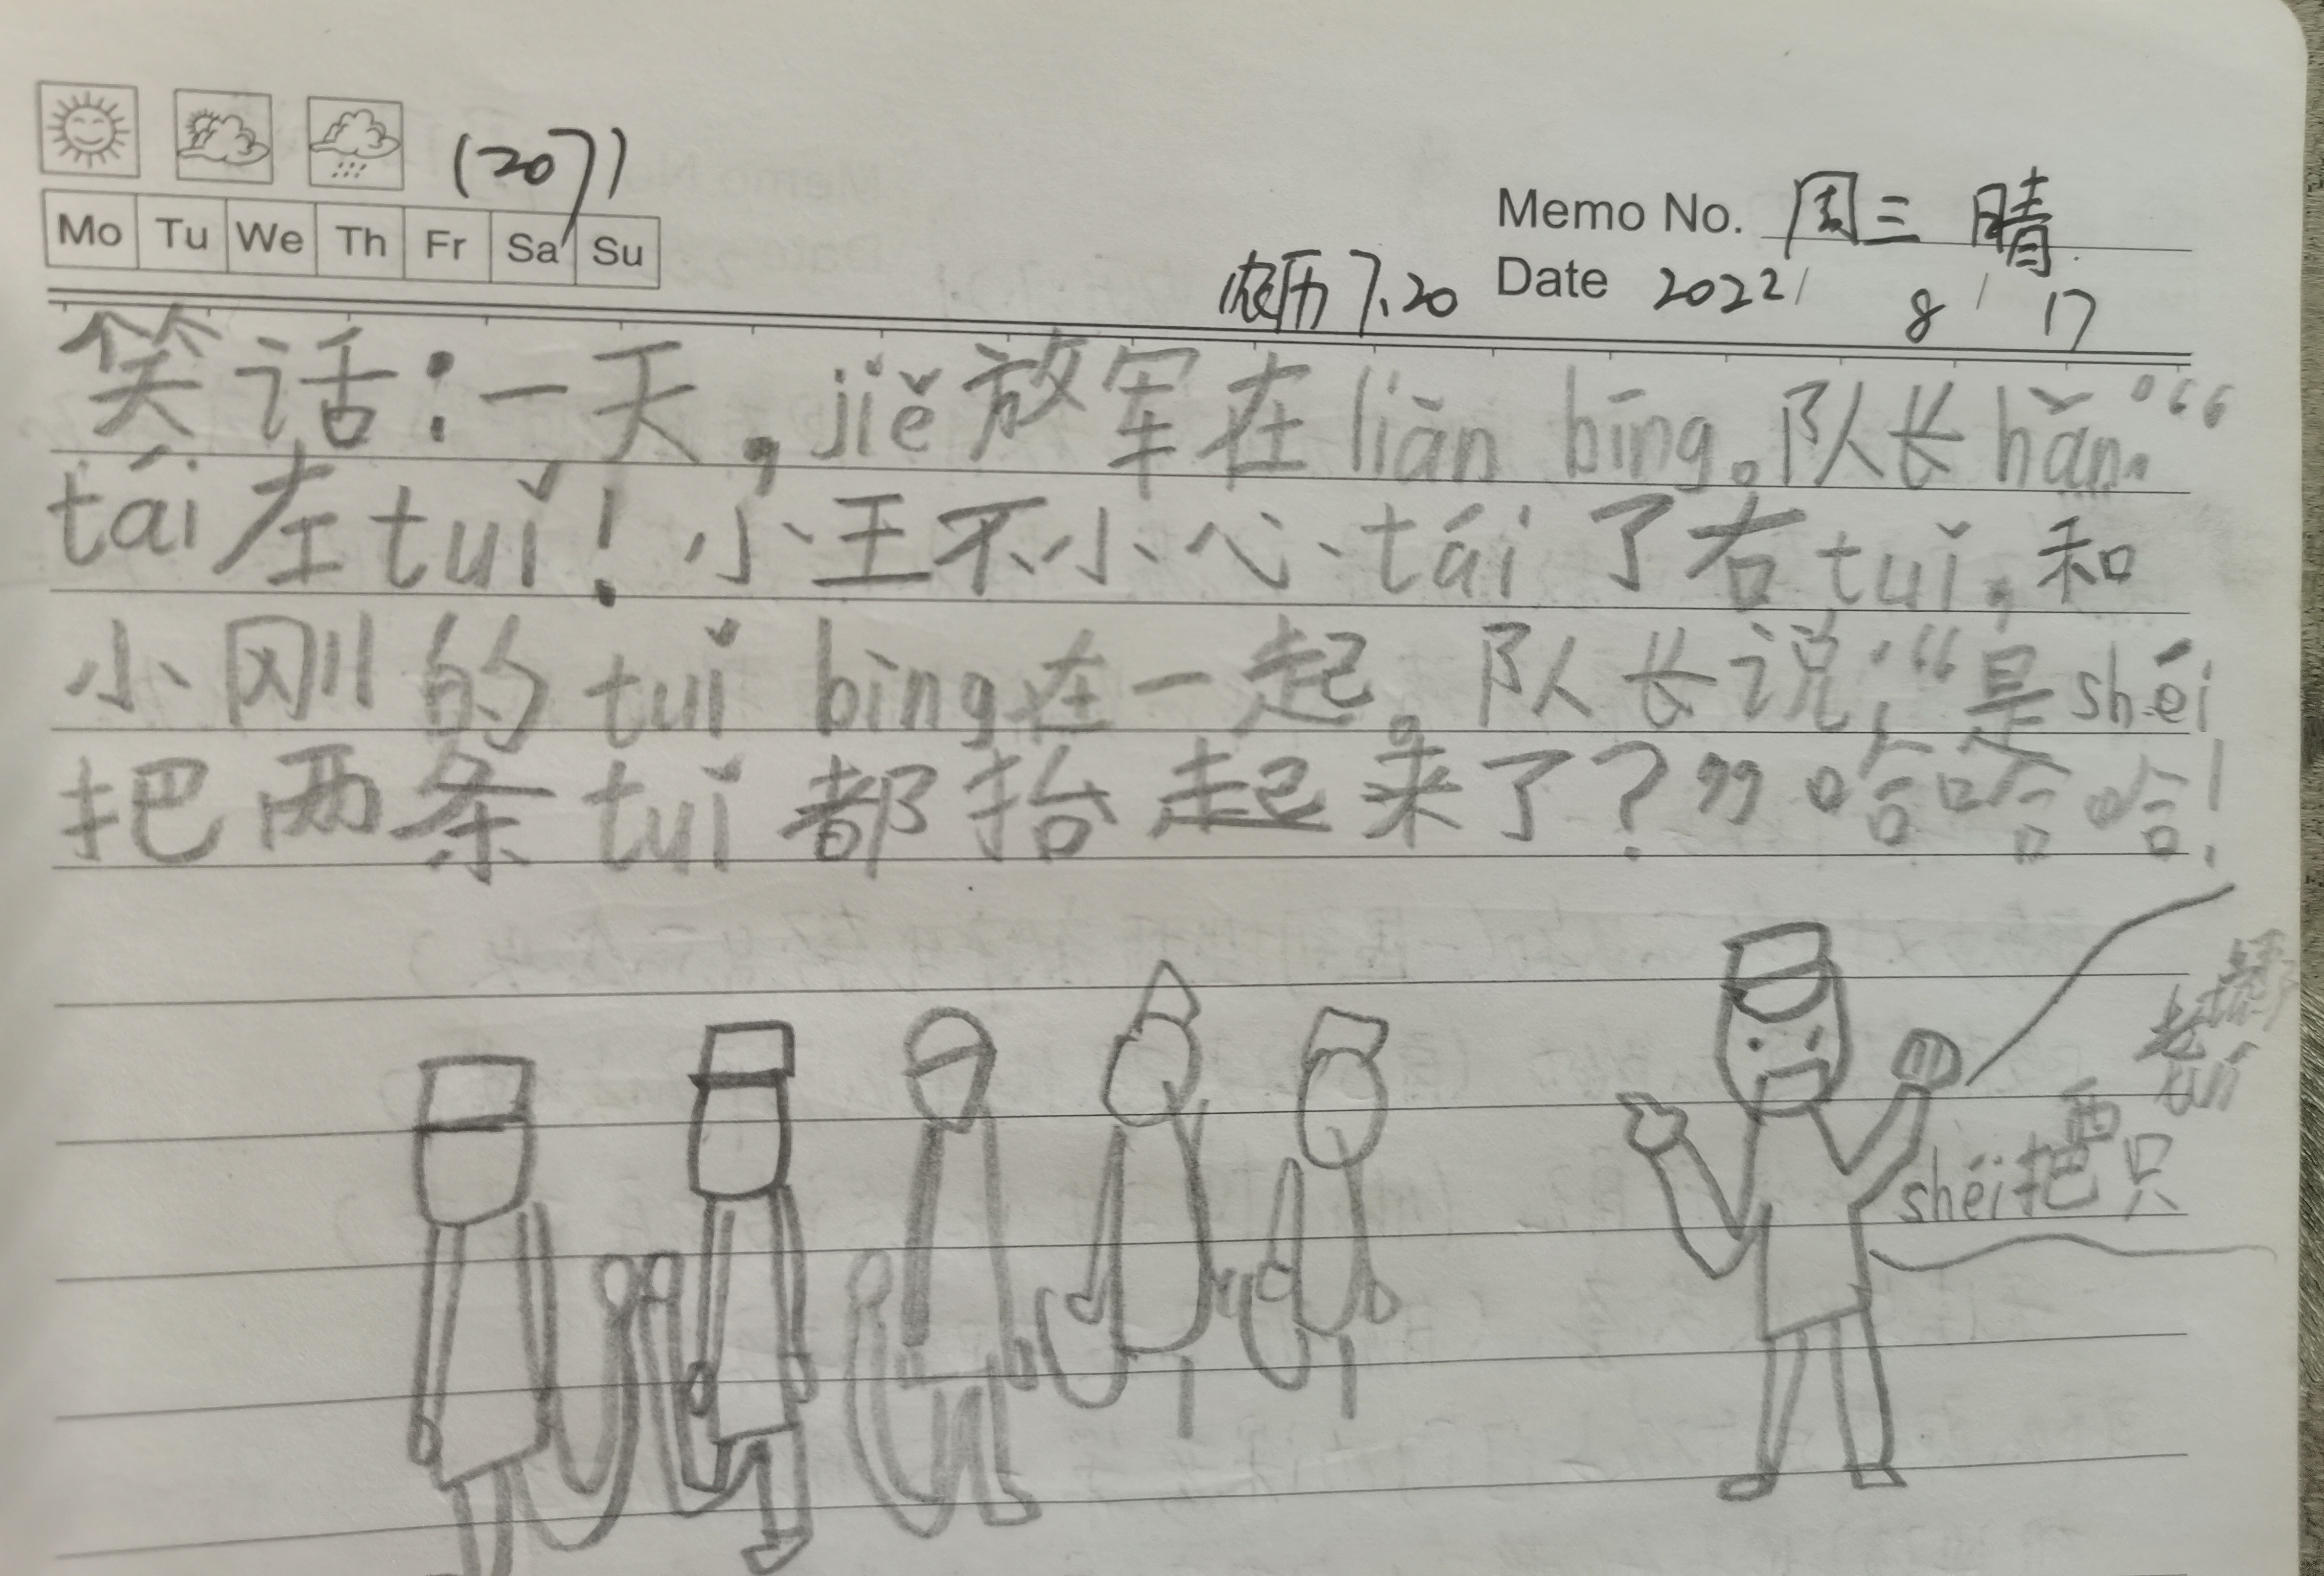 (207)
Mo Tu We Th Fr Sa Su
Memo No. 周三 晴
农历 7.20 Date 2022/ 8/ 17
笑话：一天，jiě放军在liàn bīng。队长hǎn：“
tái左tuǐ！小王不小心tái了右tuǐ，和
小刚的tuǐ bìng在一起。队长说：“是shéi
把两条tuǐ都抬起来了？”哈哈哈！
shéi把两只
tuǐ